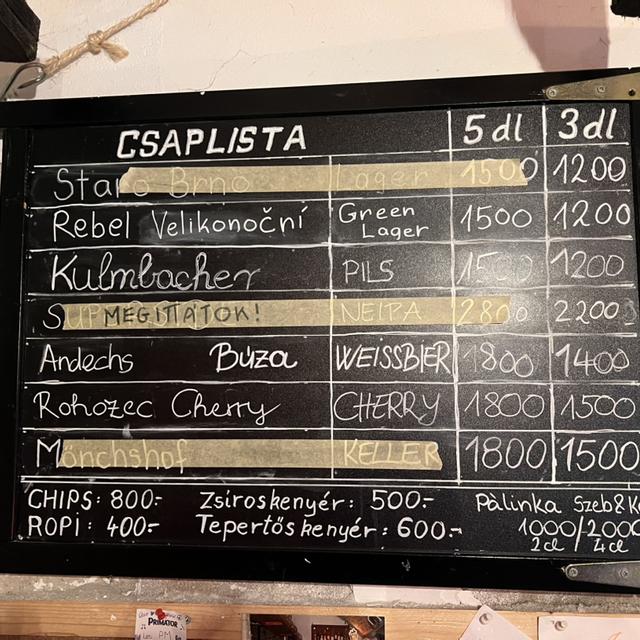 CSAPLISTA 5 dl 3 dl
Staro Brno Lager 1500 1200
Rebel Velikonoční Green Lager 1500 1200
Kulmbacher PILS 1500 1200
MEGITTÁTOK! NEIPA 2800 2200
Andechs Búza WEISSBIER 1800 1400
Rohozec Cherry CHERRY 1800 1500
Mönchshof KELLER 1800 1500
CHIPS: 800.- Zsíroskenyér: 500.- Pàlinka Szeb&
ROPI: 400.- Tepertős kenyér: 600.- 1000/2000
2cl / 4cl
PRIMATOR